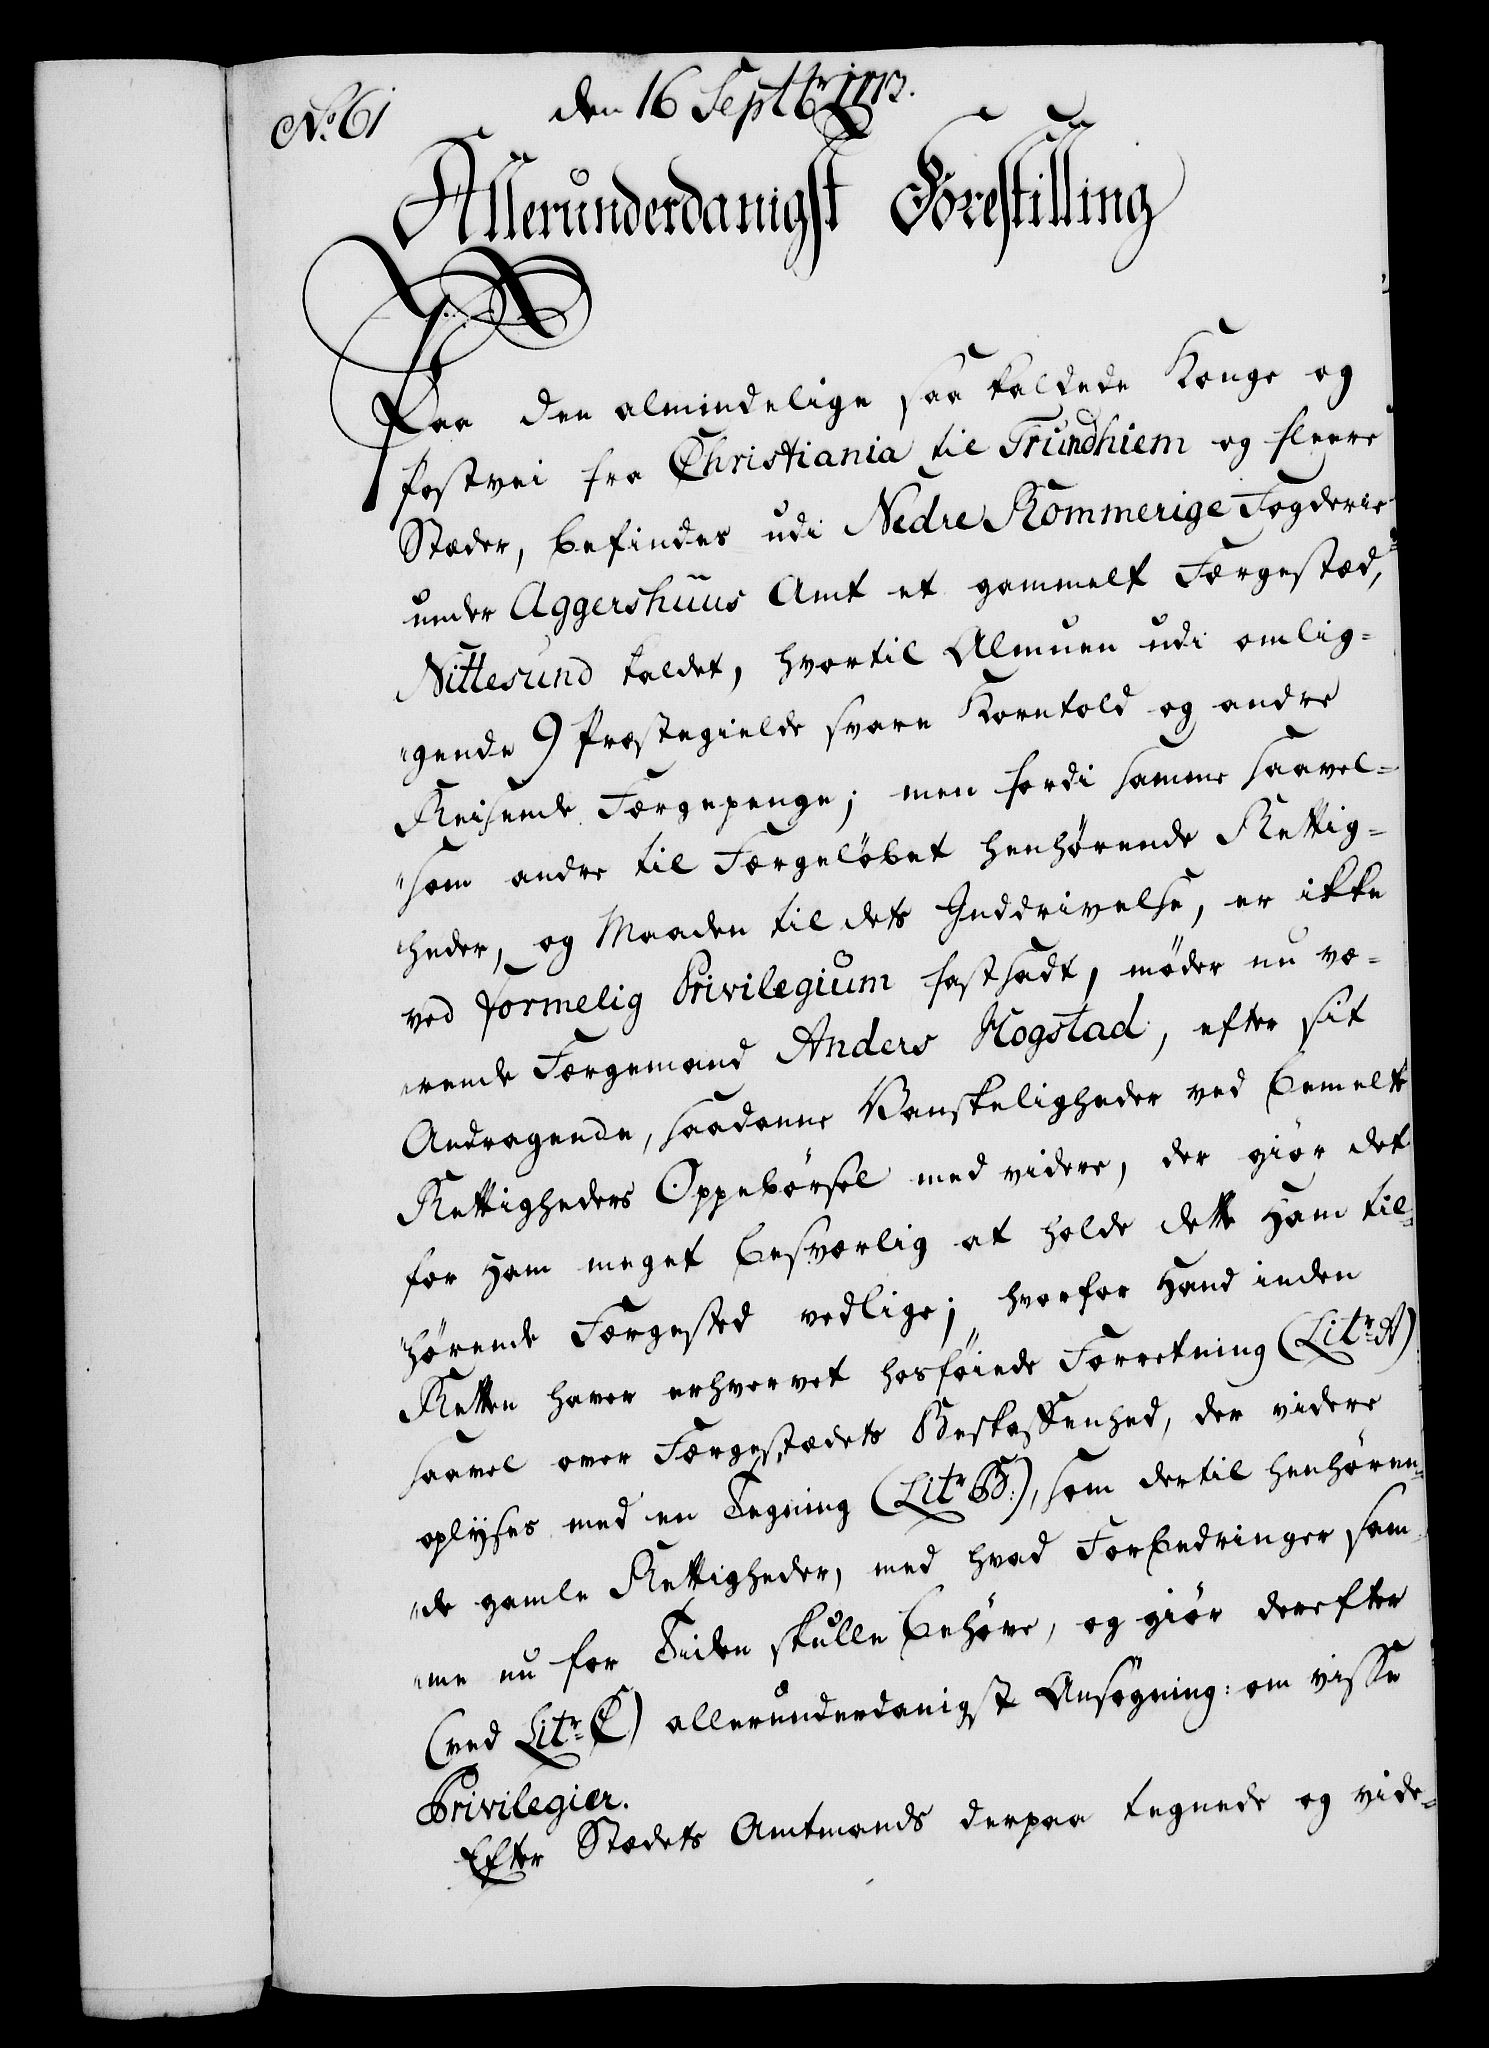 No. 61
den 16 Septbr 1773.
Allerunderdanigst Forestilling
Paa den almindelige saa kaldede Konge og
Postvei fra Christiania til Trundhiem og fleere
Stæder, befindes udi Nedre Rommerige Fogderie
under Aggershuus Amt et gammelt Færgestæd,
Nittesund kaldet, hvortil Almuen udi omlig=
"gende 9 Præstegielde svare Korntold og andre
Reisende Færgepenge; men fordi samme saavel=
"som andre til Færgeløbet henhørende Rettig=
"heder, og Maaden til dets Inddrivelse, er ikke
ved formelig Privilegium fastsadt, møder nu væ=
"rende Færgemand Anders Hogstad, efter sit
Andragende, saadanne Vanskeligheder ved bemelte
Rettigheders Oppebørsel med videre, der giør det
for Ham meget besværlig at holde dette Ham til=
"hørende Færgested vedlige; hvorfor Hand inden
Retten haver erhvervet hosføiede Forretning (Litr. A)
saavel over Færgestædets Beskaffenhed, der videre
oplyses med en Tegning (Litr B.), som dertil henhøren=
"de gamle Rettigheder, med hvad Forbedringer sam=
"me nu for Tiden skulle behøve, og giør derefter
(ved Litr. C) allerunderdanigst Ansøgning: om visse
Privilegier.
Efter Stædets Amtmands derpaa tegnede og vide=